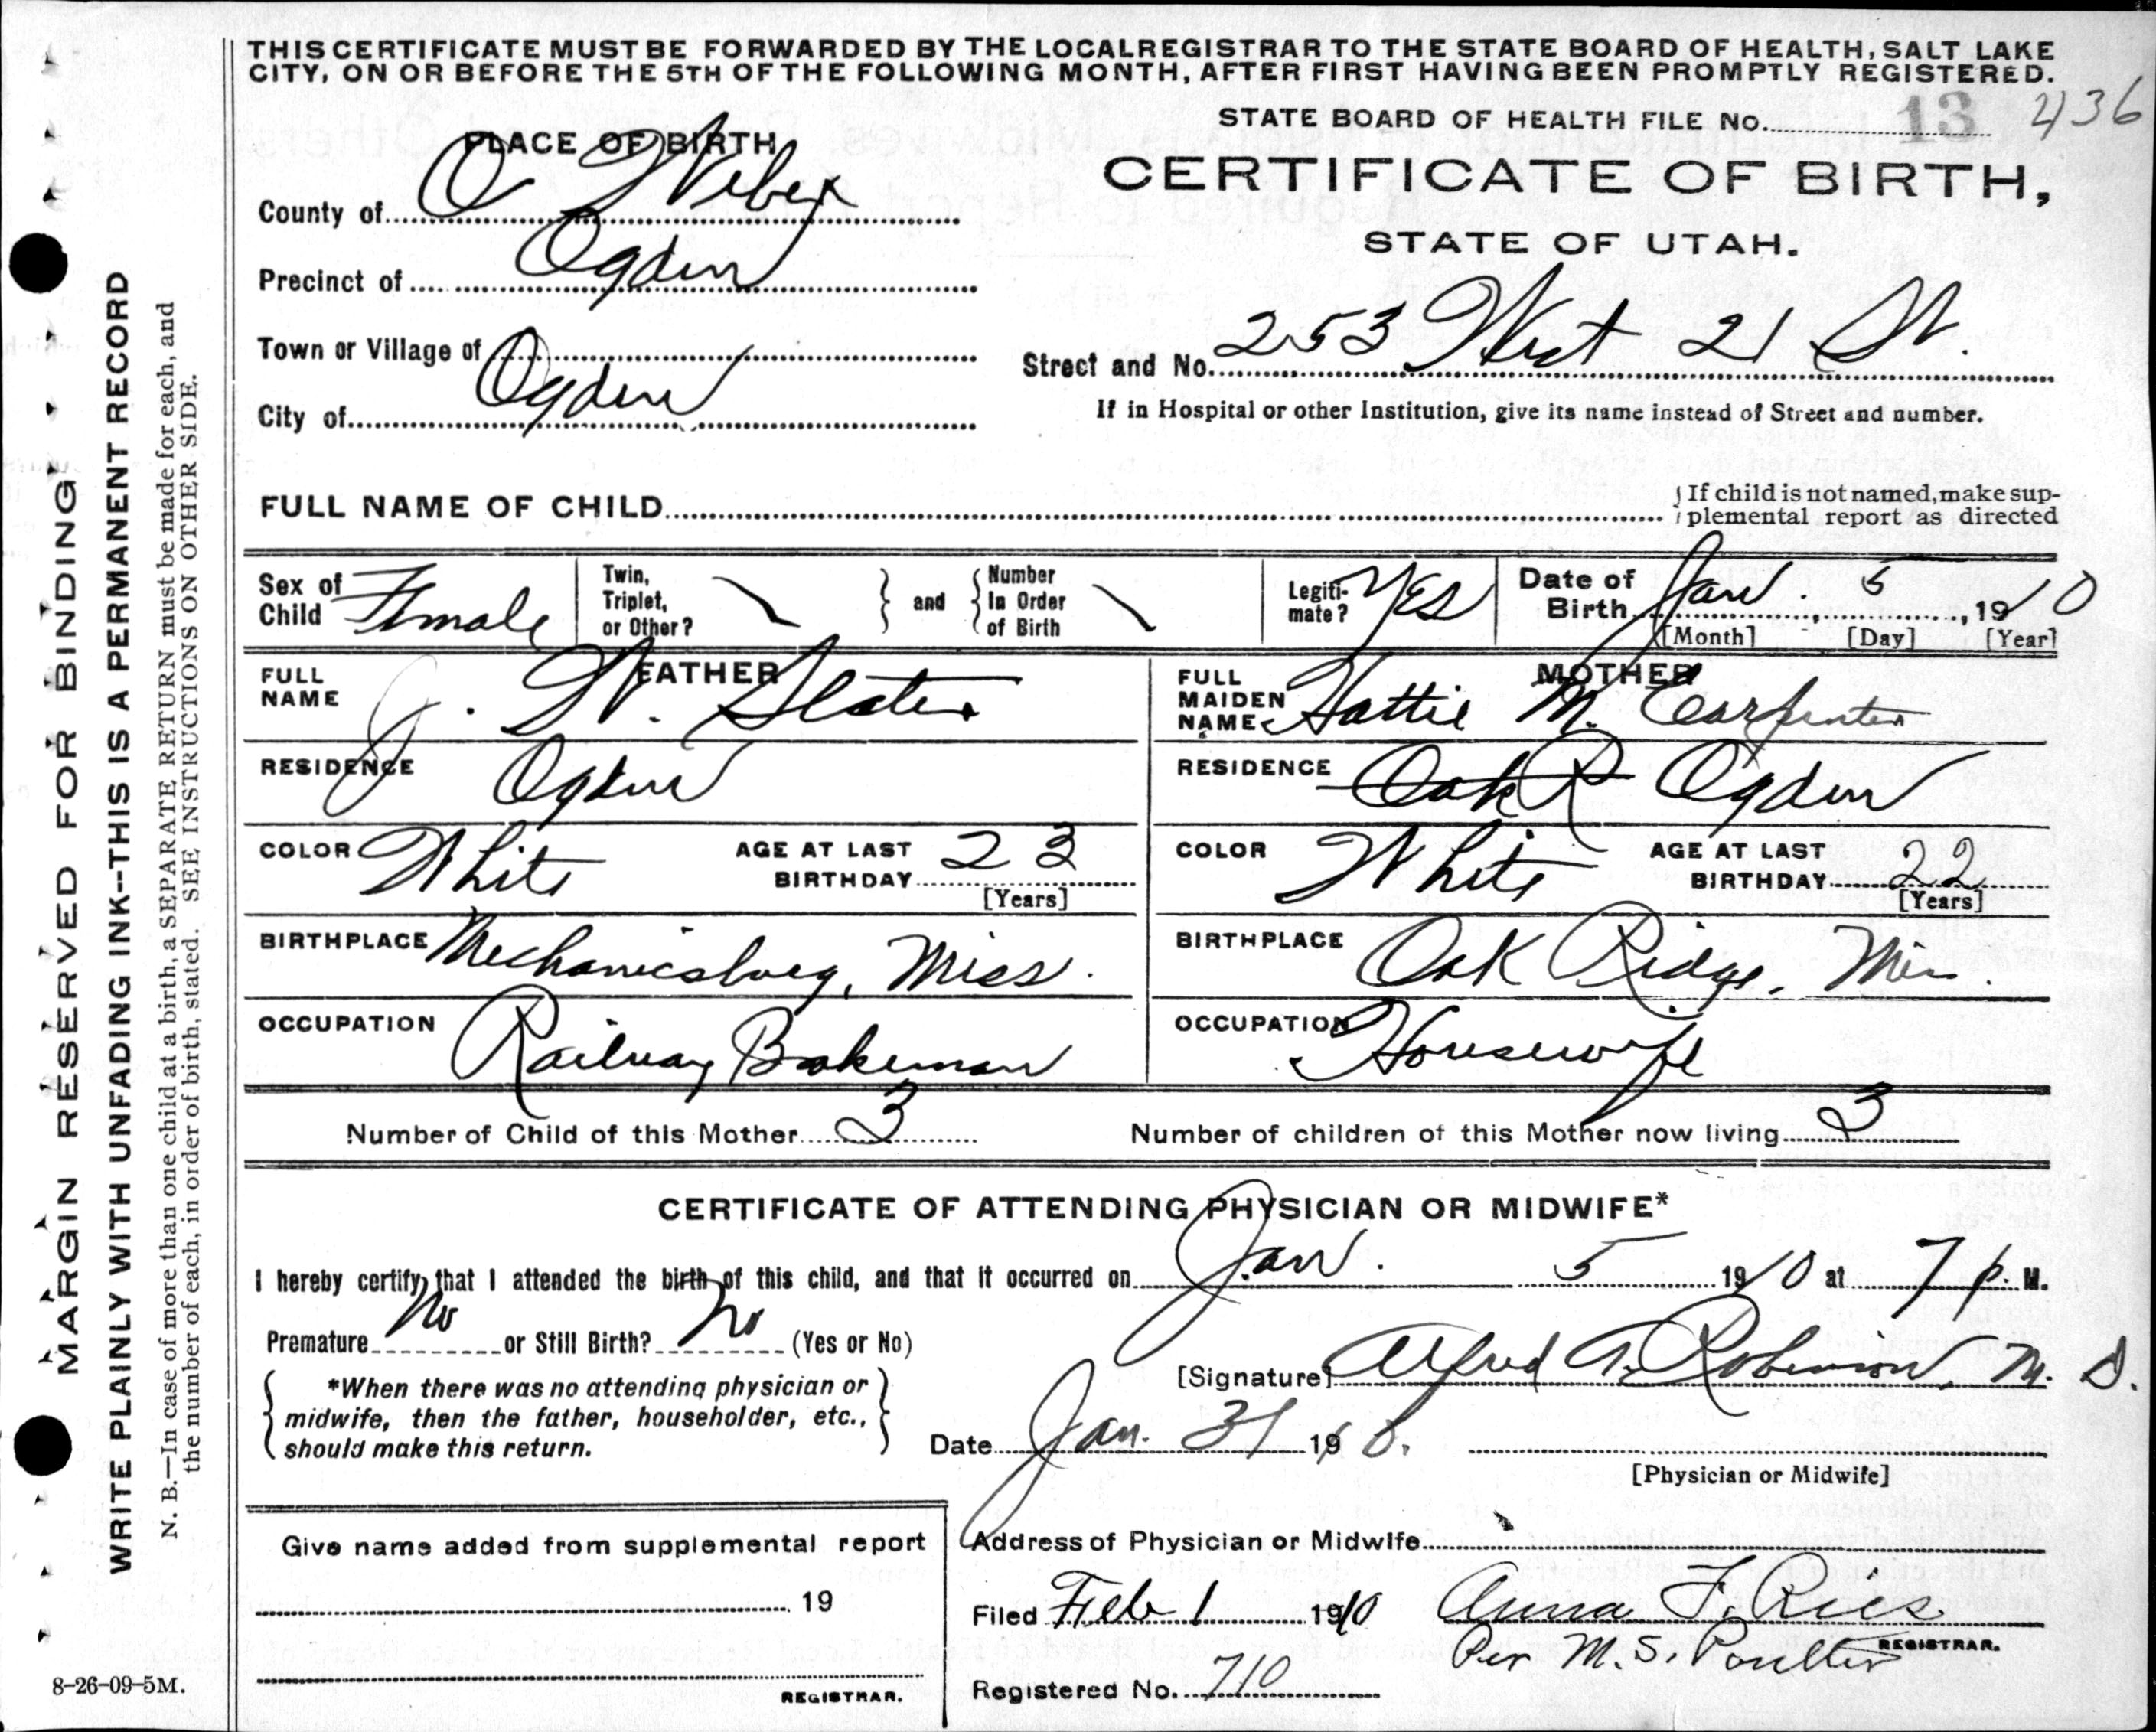 THIS CERTIFICATE MUST BE FORWARDED BY THE LOCAL REGISTRAR TO THE STATE BOARD OF HEALTH, SALT LAKE
CITY, ON OR BEFORE THE 5TH OF THE FOLLOWING MONTH, AFTER FIRST HAVING BEEN PROMPTLY REGISTERED.
STATE BOARD OF HEALTH FILE No. 13 436
PLACE OF BIRTH
CERTIFICATE OF BIRTH,
STATE OF UTAH.
County of Weber
Precinct of Ogden
Town or Village of
Street and No. 253 West 21 St.
City of Ogden
If in Hospital or other Institution, give its name instead of Street and number.
FULL NAME OF CHILD
If child is not named, make sup-
plemental report as directed
Sex of Child Female
Twin, Triplet, or Other?
and
Number In Order of Birth
Legiti-mate? Yes
Date of Birth Jan. 5, 1910
[Month] [Day] [Year]
FATHER
FULL NAME J. W. Slater
RESIDENCE Ogden
COLOR White AGE AT LAST BIRTHDAY 23
[Years]
BIRTHPLACE Mechanicsburg, Miss.
OCCUPATION Railway Bakeman
MOTHER
FULL MAIDEN NAME Hattie M. Carpenter
RESIDENCE Oak R Ogden
COLOR White AGE AT LAST BIRTHDAY 22
[Years]
BIRTHPLACE Oak Ridge, Miss.
OCCUPATION Housewife
Number of Child of this Mother 3 Number of children of this Mother now living 3
CERTIFICATE OF ATTENDING PHYSICIAN OR MIDWIFE*
I hereby certify that I attended the birth of this child, and that it occurred on Jan. 5 1910 at 7 p. M.
Premature No or Still Birth? No (Yes or No)
[Signature] Alfred Robinson, M. D.
*When there was no attending physician or
midwife, then the father, householder, etc.,
should make this return.
Date Jan. 31 1910.
[Physician or Midwife]
Give name added from supplemental report
19
REGISTRAR.
Address of Physician or Midwife
Filed Feb 1 1910 Anna F. Ries
REGISTRAR.
Per M. S. Poulter
Registered No. 710
8-26-09-5M.
MARGIN RESERVED FOR BINDING
WRITE PLAINLY WITH UNFADING INK--THIS IS A PERMANENT RECORD
N. B.—In case of more than one child at a birth, a SEPARATE RETURN must be made for each, and
the number of each, in order of birth, stated. SEE INSTRUCTIONS ON OTHER SIDE.